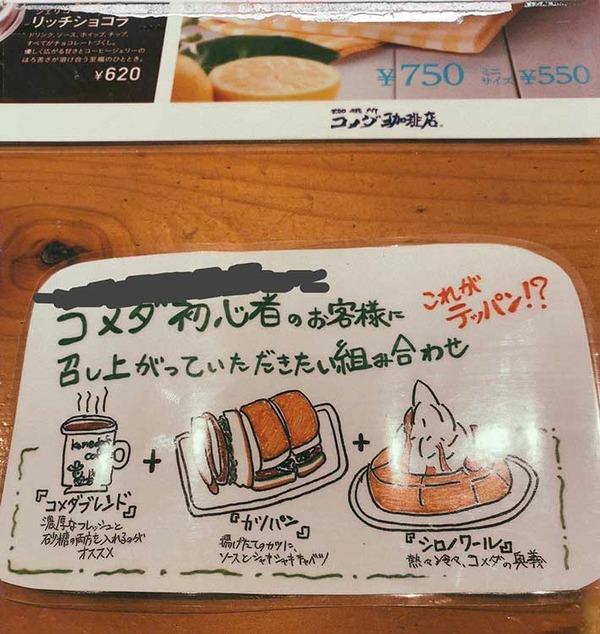 リッチショコラ
ドリンク、ソース、ホイップ、チップ、
すべてがチョコレートづくし。
優しく広がる甘さとコーヒージェリーの
ほろ苦さが溶け合う至福のひととき。
¥620
¥750 ミニサイズ ¥550
珈琲所
コメダ珈琲店。
コメダ初心者のお客様に
召し上がっていただきたい組み合わせ
これが
テッパン!?
Komeda's
+
+
『コメダブレンド』
濃厚なフレッシュと
砂糖の両方を入れるのが
オススメ
『カツパン』
揚げたてのカツに、
ソースとシャキシャキキャベツ
『シロノワール』
熱々冷々、コメダの奥義